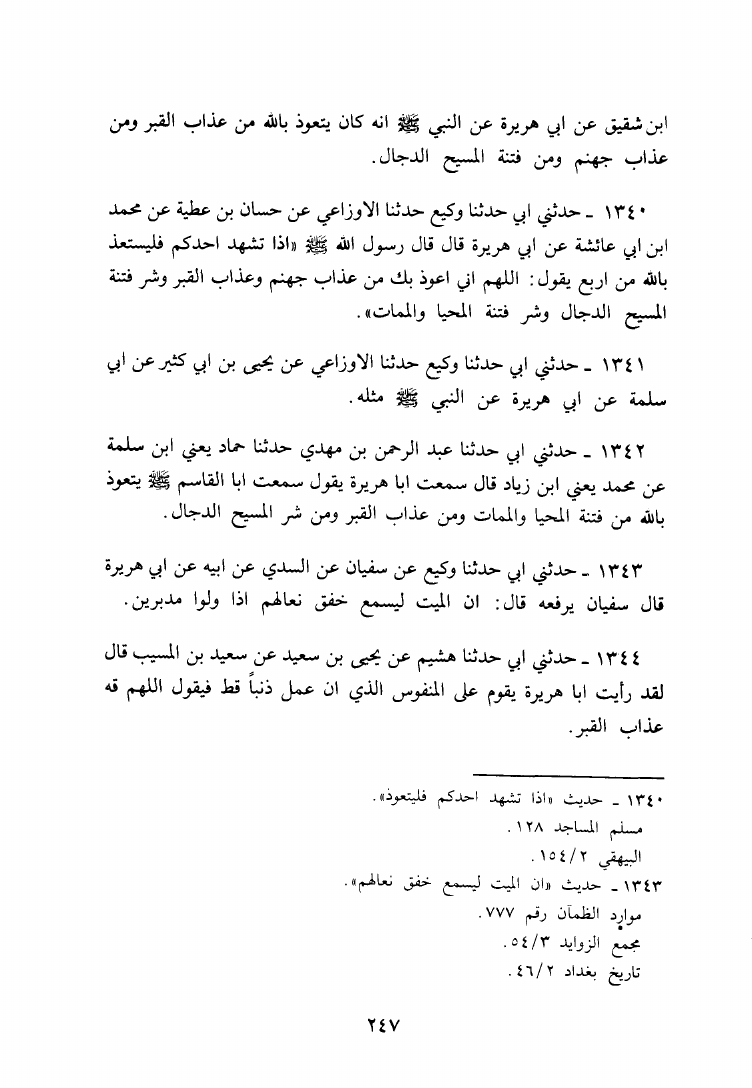 ابن شقيق عن ابي هريرة عن النبي ﷺ انه كان يتعوذ بالله من عذاب القبر ومن
عذاب جهنم ومن فتنة المسيح الدجال.
١٣٤٠ ـ حدثني ابي حدثنا وكيع حدثنا الاوزاعي عن حسان بن عطية عن محمد
ابن ابي عائشة عن ابي هريرة قال قال رسول الله ﷺ «اذا تشهد احدكم فليستعذ
بالله من اربع يقول: اللهم اني اعوذ بك من عذاب جهنم وعذاب القبر وشر فتنة
المسيح الدجال وشر فتنة المحيا والممات».
١٣٤١ ـ حدثني ابي حدثنا وكيع حدثنا الاوزاعي عن يحيى بن ابي كثير عن ابي
سلمة عن ابي هريرة عن النبي ﷺ مثله.
١٣٤٢ ـ حدثني ابي حدثنا عبد الرحمن بن مهدي حدثنا حماد يعني ابن سلمة
عن محمد يعني ابن زياد قال سمعت ابا هريرة يقول سمعت ابا القاسم ﷺ يتعوذ
بالله من فتنة المحيا والممات ومن عذاب القبر ومن شر المسيح الدجال.
١٣٤٣ ـ حدثني ابي حدثنا وكيع عن سفيان عن السدي عن ابيه عن ابي هريرة
قال سفيان يرفعه قال: ان الميت ليسمع خفق نعالهم اذا ولوا مدبرين.
١٣٤٤ ـ حدثني ابي حدثنا هشيم عن يحيى بن سعيد عن سعيد بن المسيب قال
لقد رأيت ابا هريرة يقوم على المنفوس الذي ان عمل ذنباً قط فيقول اللهم قه
عذاب القبر.
١٣٤٠ ـ حديث «اذا تشهد احدكم فليتعوذ».
مسلم المساجد ١٢٨.
البيهقي ١٥٤/٢.
١٣٤٣ ـ حديث «ان الميت ليسمع خفق نعالهم».
موارد الظمآن رقم ٧٧٧.
مجمع الزوايد ٥٤/٣.
تاريخ بغداد ٤٦/٢.
٢٤٧